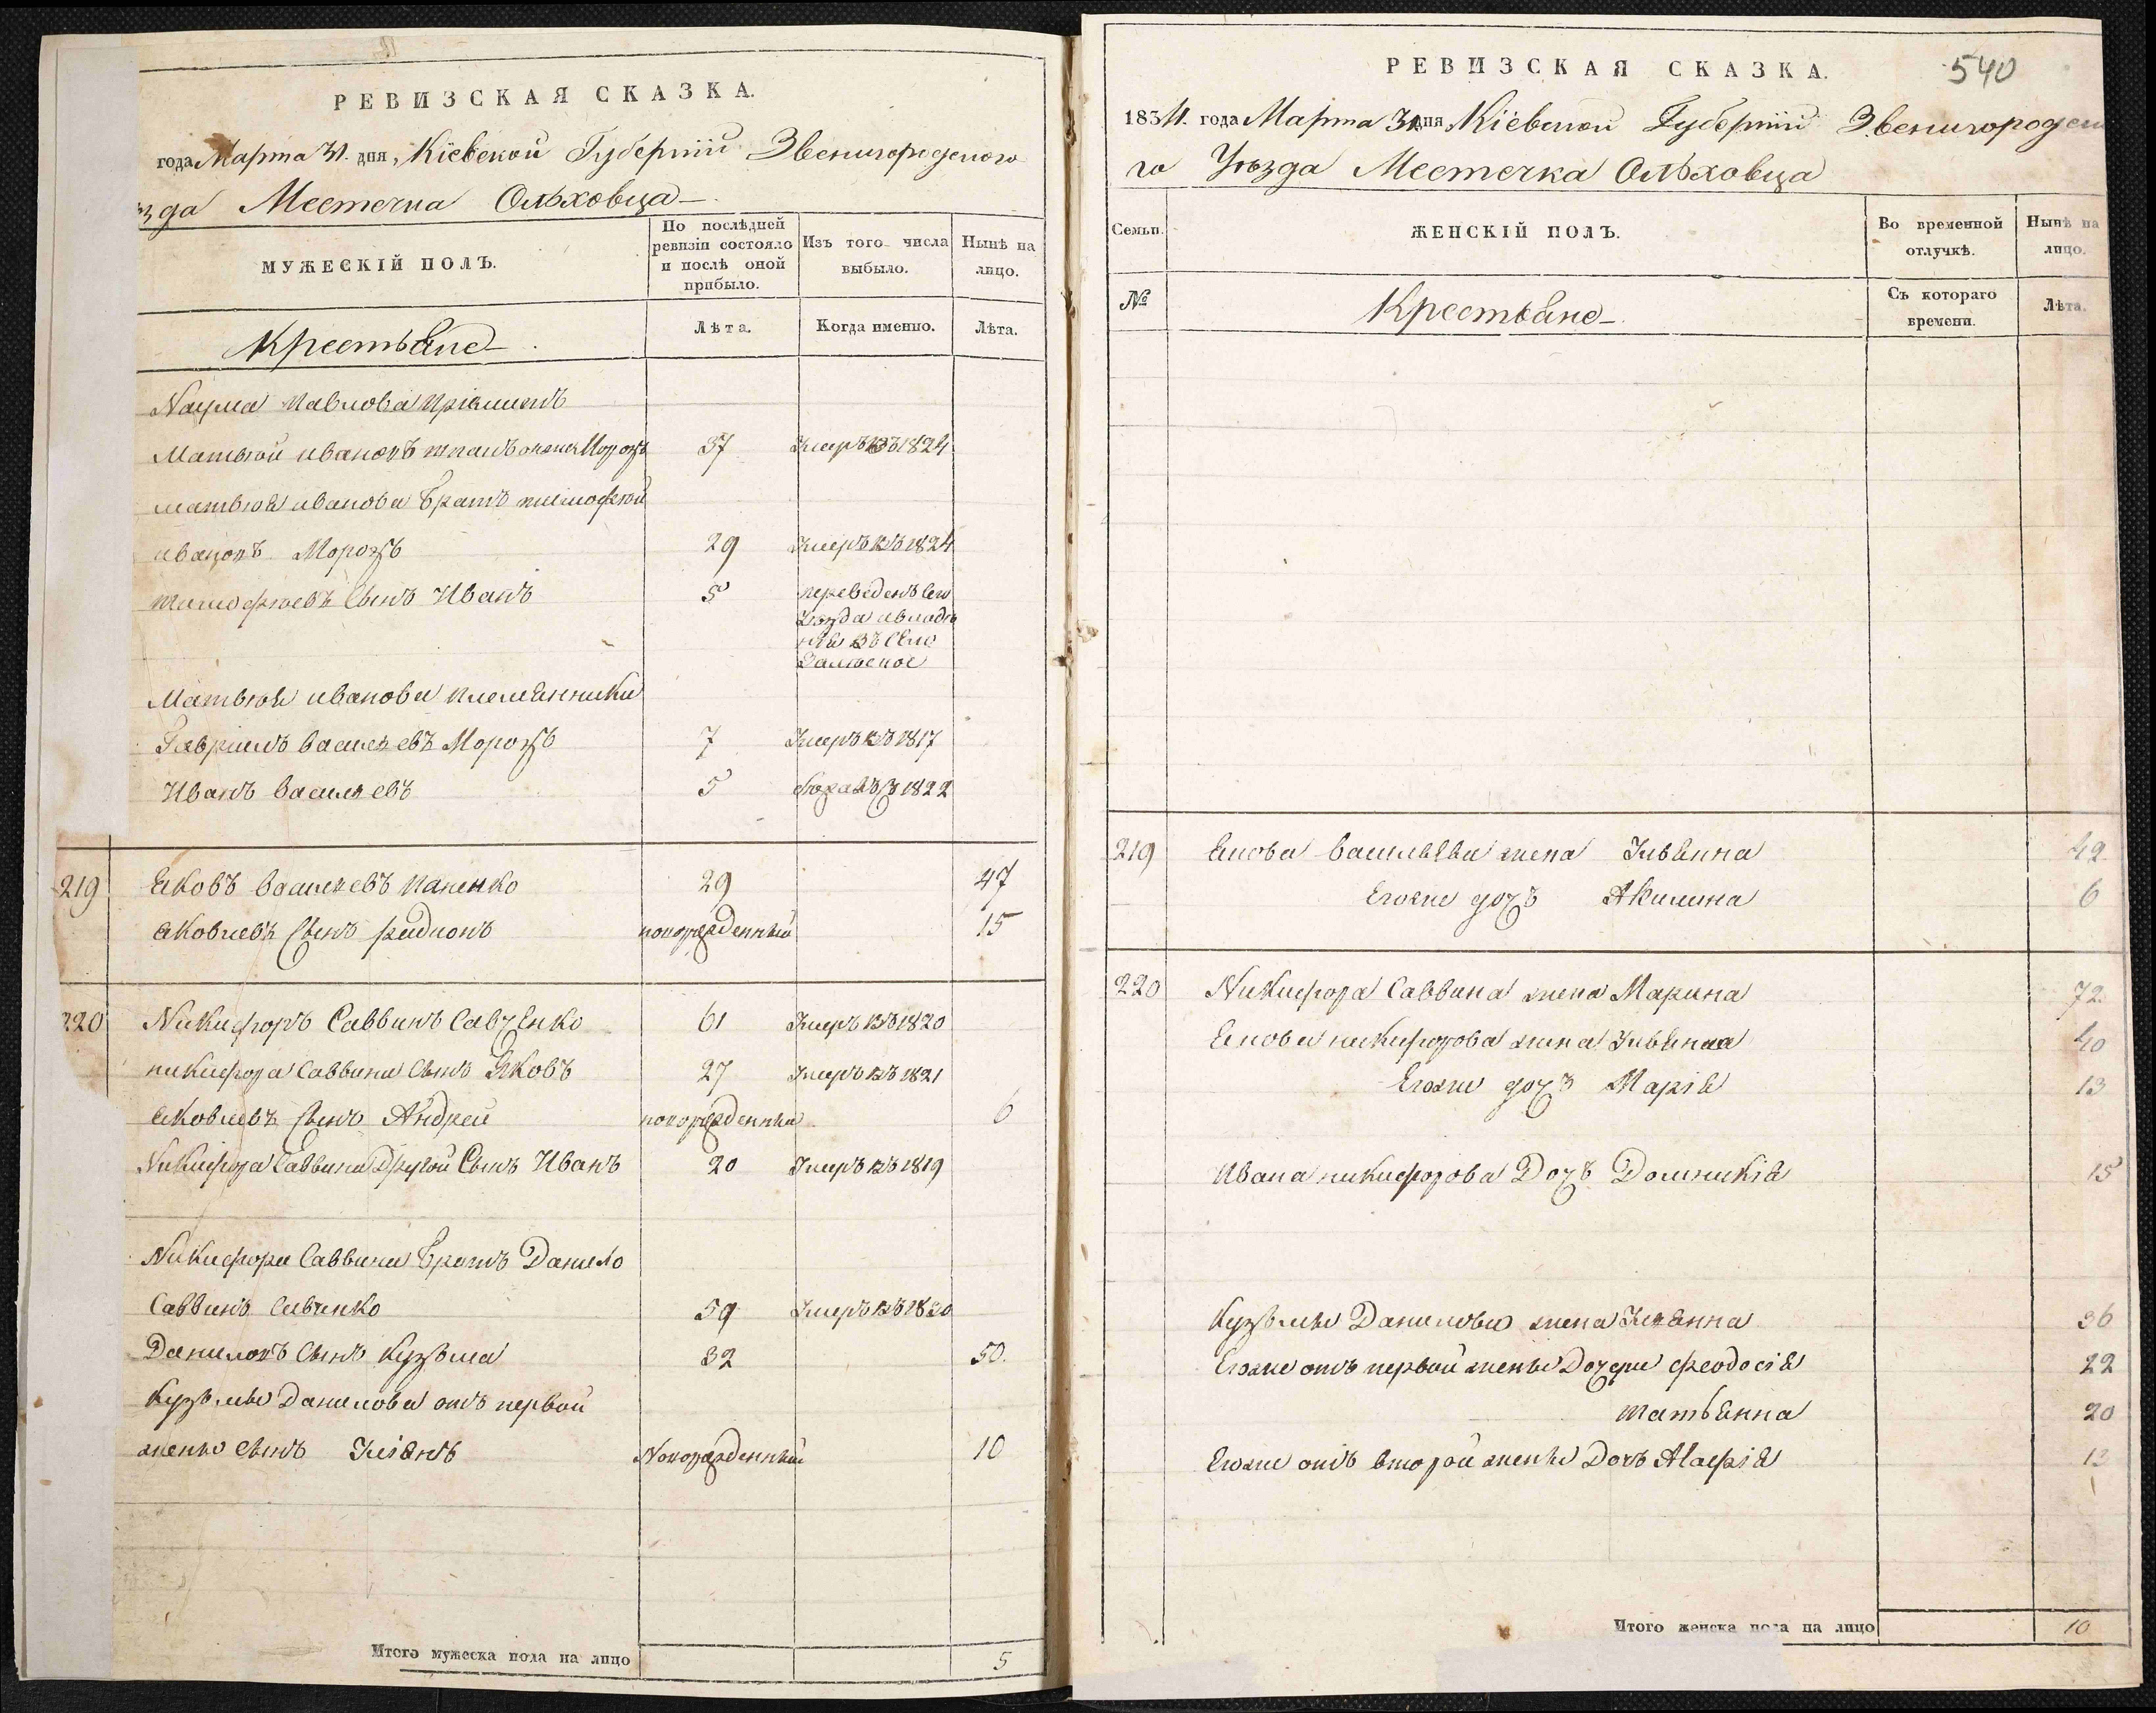 РЕВИЗСКАЯ СКАЗКА.
года Марта 31. дня, Кіевской Губерніи Звенигородского
зда Местечка Ольховца
МУЖЕСКІЙ ПОЛЪ.
По послѣдней ревизіи состояло и послѣ оной прибыло.
Изъ того числа выбыло.
Нынѣ на лицо.
Крестьяне
Лѣта.
Когда именно.
Лѣта.
Наума Павлова
Матвѣй ивановъ Морозъ 37 Умеръ въ 1824
матвѣя иванова братъ тимофѣй
ивановъ Морозъ 29 Умеръ въ 1824
тимофѣевъ Сынъ Иванъ 5 переведенъ сего
уѣзда
въ село
Матвѣя иванова племянники
Гавріилъ васильевъ Морозъ 7 Умеръ въ 1817
Иванъ васильевъ 5 1822
219 Яковъ васильевъ Паненко 29 47
яковлевъ Сынъ радионъ новорожденный 15
220 Никифоръ Саввинъ Савченко 61 Умеръ въ 1820
никифора Саввина Сынъ Яковъ 27 Умеръ въ 1821
яковлевъ Сынъ Андрей новорожденный 6
Никифора Саввина Другой Сынъ Иванъ 20 Умеръ въ 1819
Никифора Саввина братъ Данило
Саввинъ Савченко 59 Умеръ въ 1830
Даниловъ Сынъ Кузьма 32 50.
Кузьмы Данилова отъ первой
жены сынъ Новорожденный 10
Итого мужеска пола на лицо 5
540
РЕВИЗСКАЯ СКАЗКА.
1834. года Марта 31 дня Кіевской Губерніи Звенигородско
го Уѣзда Местечка Ольховца
Семьи.
ЖЕНСКІЙ ПОЛЪ.
Во временной отлучкѣ.
Нынѣ на лицо.
№
Крестьяне
Съ котораго времени.
Лѣта.
219 Якова Васильева жена Ульянна 42
Егоже дочь Акилина 6
220 Никифора Саввина жена Марина 72
Якова никифорова жена Ульянна 40
Егоже дочь Марія 13
Ивана никифорова Дочь Домникія 15
Кузьмы Данилова жена Ульянна 36
Егоже отъ первой жены Дочери феодосія 22
татьянна 20
Егоже отъ второй жены Дочь Агафія 12
Итого женска пола на лицо 10